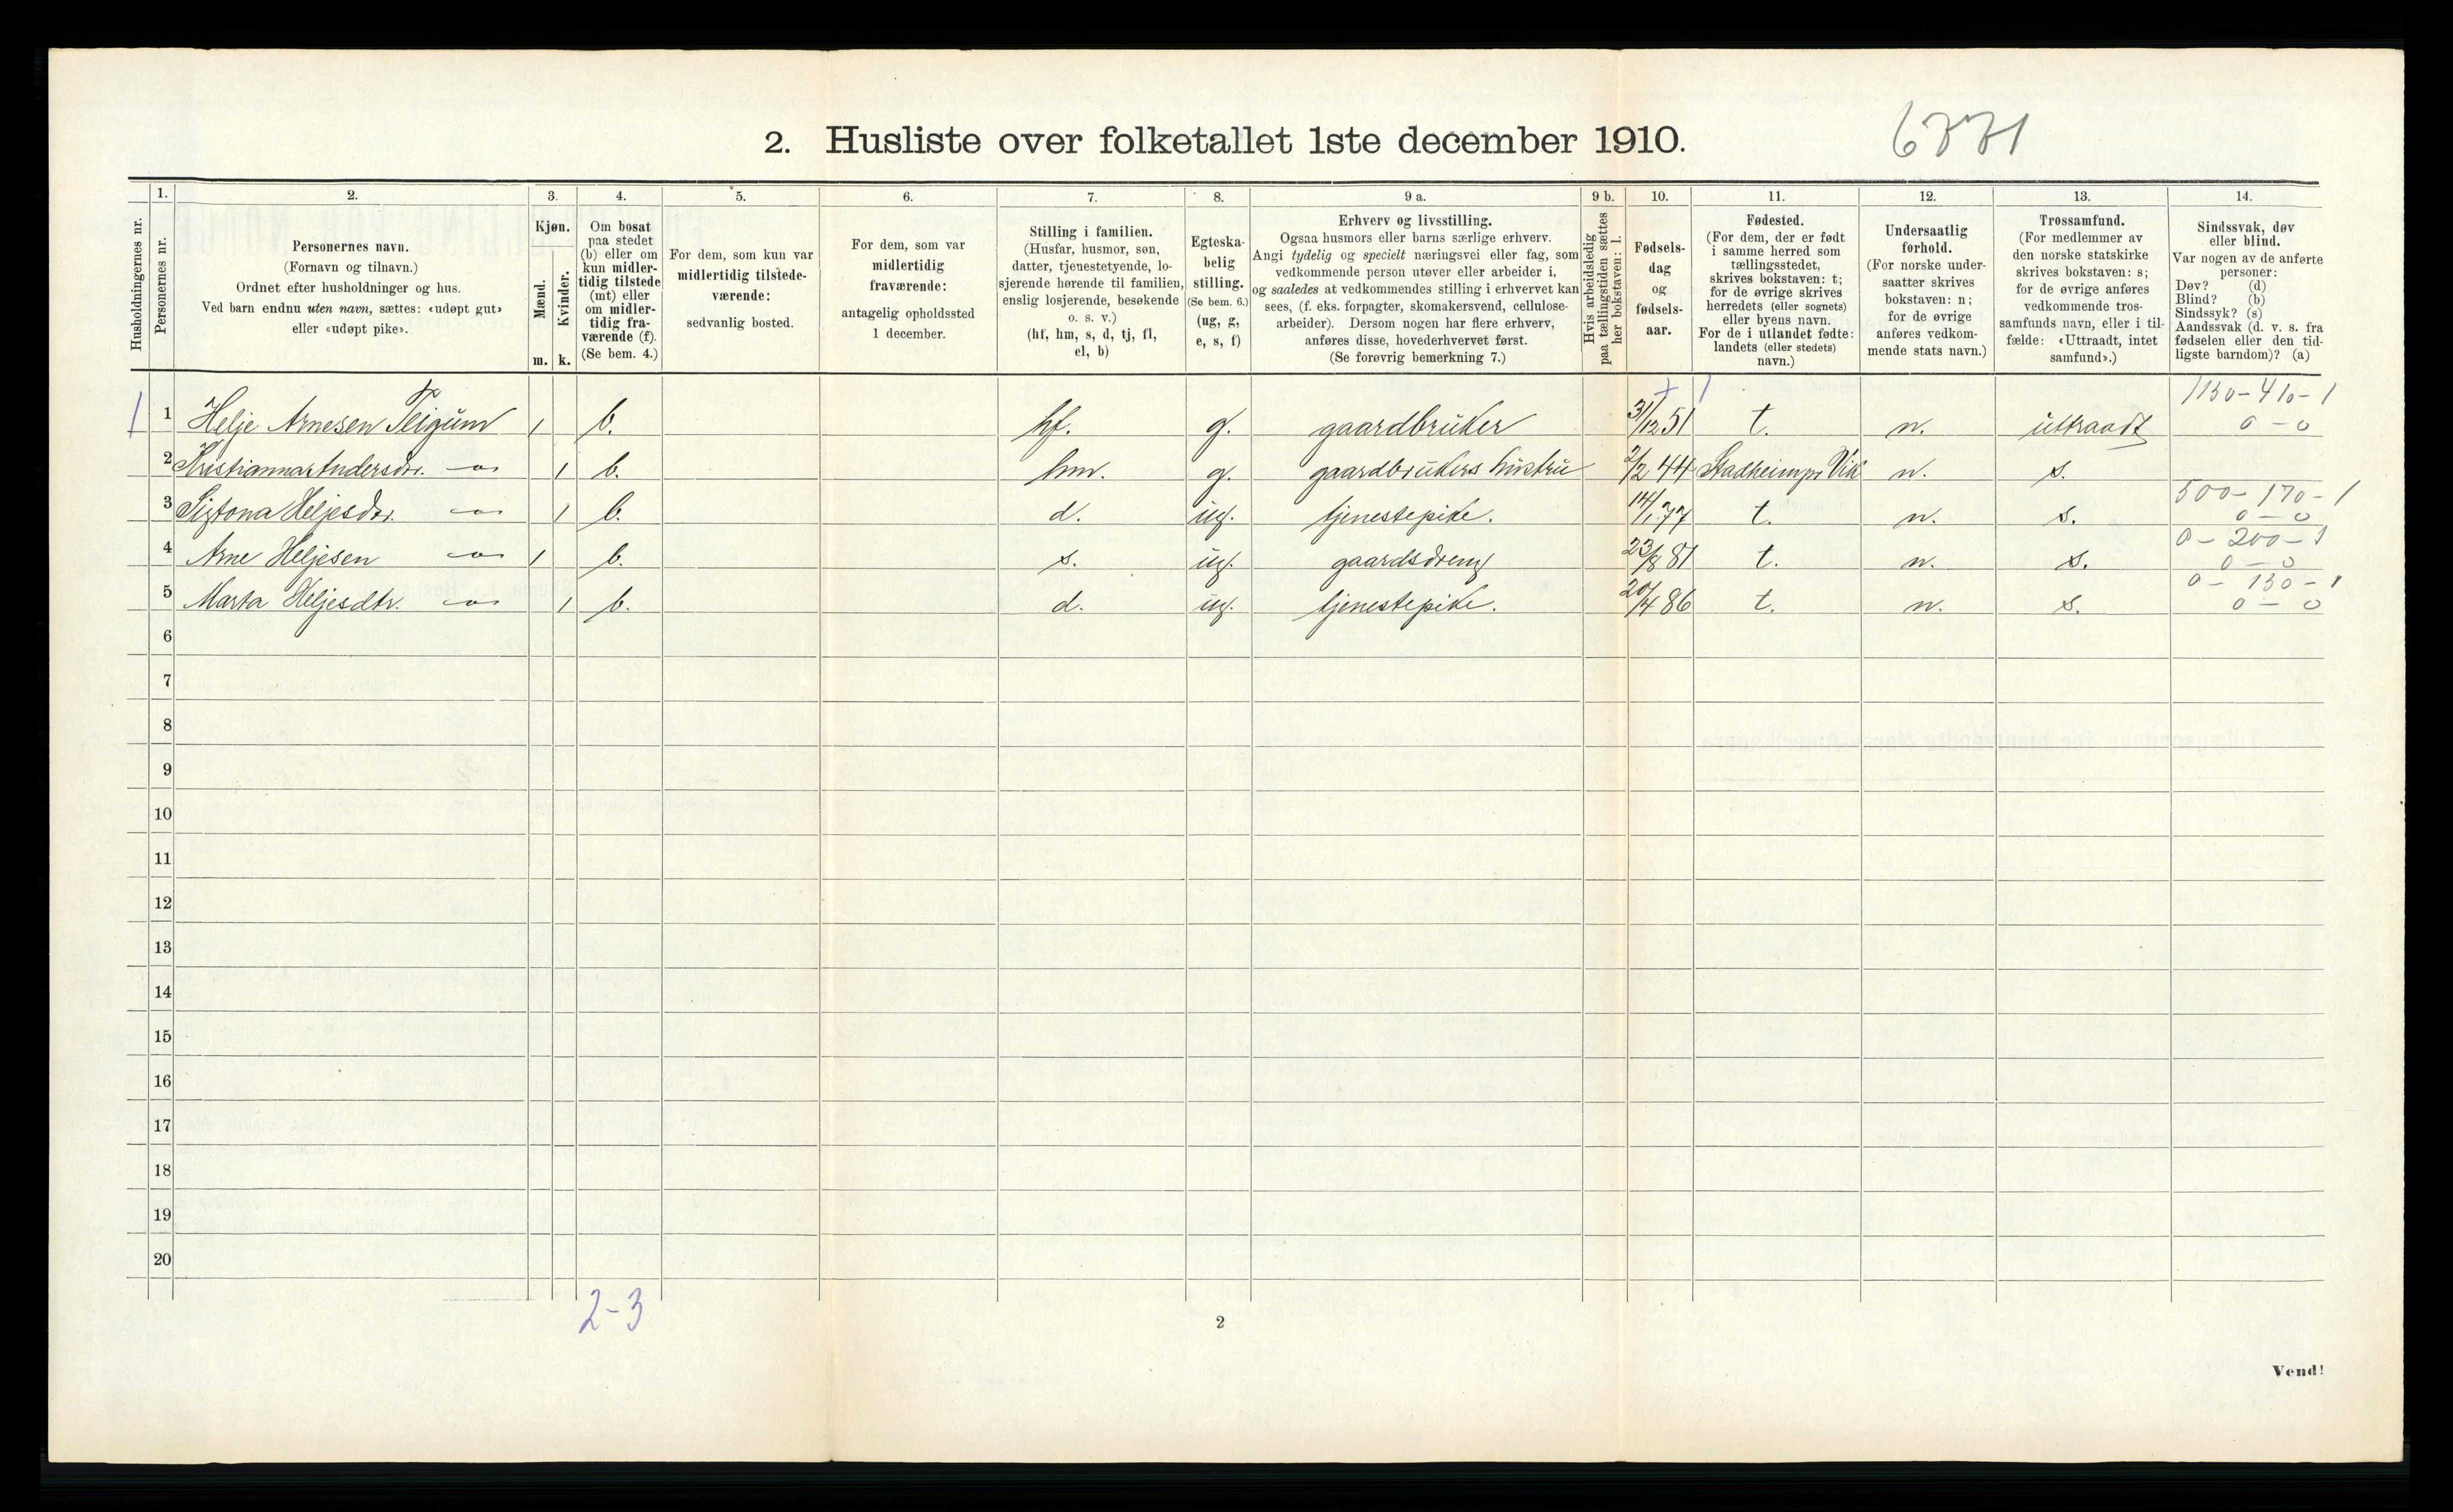 6771
2. Husliste over folketallet 1ste december 1910.
Husholdningernes nr.
1.
Personernes nr.
2.
Personernes navn.
(Fornavn og tilnavn.)
Ordnet efter husholdninger og hus.
Ved barn endnu uten navn, sættes: «udøpt gut»
eller «udøpt pike».
3.
Kjøn.
Mænd.
Kvinder.
m. k.
4.
Om bosat
paa stedet
(b) eller om
kun midler-
tidig tilstede
(mt) eller
om midler-
tidig fra-
værende (f).
(Se bem. 4.)
5.
For dem, som kun var
midlertidig tilstede-
værende:
sedvanlig bosted.
6.
For dem, som var
midlertidig
fraværende:
antagelig opholdssted
1 december.
7.
Stilling i familien.
(Husfar, husmor, søn,
datter, tjenestetyende, lo-
sjerende hørende til familien,
enslig losjerende, besøkende
o. s. v.)
(hf, hm, s, d, tj, fl,
el, b)
8.
Egteska-
belig
stilling.
(Se bem. 6.)
(ug, g,
e, s, f)
9 a.
Erhverv og livsstilling.
Ogsaa husmors eller barns særlige erhverv.
Angi tydelig og specielt næringsvei eller fag, som
vedkommende person utøver eller arbeider i,
og saaledes at vedkommendes stilling i erhvervet kan
sees, (f. eks. forpagter, skomakersvend, cellulose-
arbeider). Dersom nogen har flere erhverv,
anføres disse, hovederhvervet først.
(Se forøvrig bemerkning 7.)
9 b.
Hvis arbeidsledig
paa tællingstiden sættes
her bokstaven: l.
10.
Fødsels-
dag
og
fødsels-
aar.
11.
Fødested.
(For dem, der er født
i samme herred som
tællingsstedet,
skrives bokstaven: t;
for de øvrige skrives
herredets (eller sognets)
eller byens navn.
For de i utlandet fødte:
landets (eller stedets)
navn.)
12.
Undersaatlig
forhold.
(For norske under-
saatter skrives
bokstaven: n;
for de øvrige
anføres vedkom-
mende stats navn.)
13.
Trossamfund.
(For medlemmer av
den norske statskirke
skrives bokstaven: s;
for de øvrige anføres
vedkommende tros-
samfunds navn, eller i til-
fælde: «Uttraadt, intet
samfund».)
14.
Sindssvak, døv
eller blind.
Var nogen av de anførte
personer:
Døv? (d)
Blind? (b)
Sindssyk? (s)
Aandssvak (d. v. s. fra
fødselen eller den tid-
ligste barndom)? (a)
1130-410-1
1 1 Helje Arnesen Teigum 1 b. hf. g. gaardbruker 31/12 51 t. n. uttraadt 0-0
2 Kristianna Andersdtr. -"- 1 b. hm. g. gaardbrukers hustru 2/2 44 Stadheim pr Vik n. s.
500-170-1
3 Heljesdtr. -"- 1 b. d. ug. tjenestepike. 14/1 77 t. n. s. 0-0
0-200-1
4 Arne Heljesen -"- 1 b. s. ug. gaardsdreng 23/8 81 t. n. s. 0-0
0-130-1
5 Marta Heljesdtr. -"- 1 b. d. ug. tjenestepike. 20/4 86 t. n. s. 0-0
6
7
8
9
10
11
12
13
14
15
16
17
18
19
20
2-3
2
Vend!